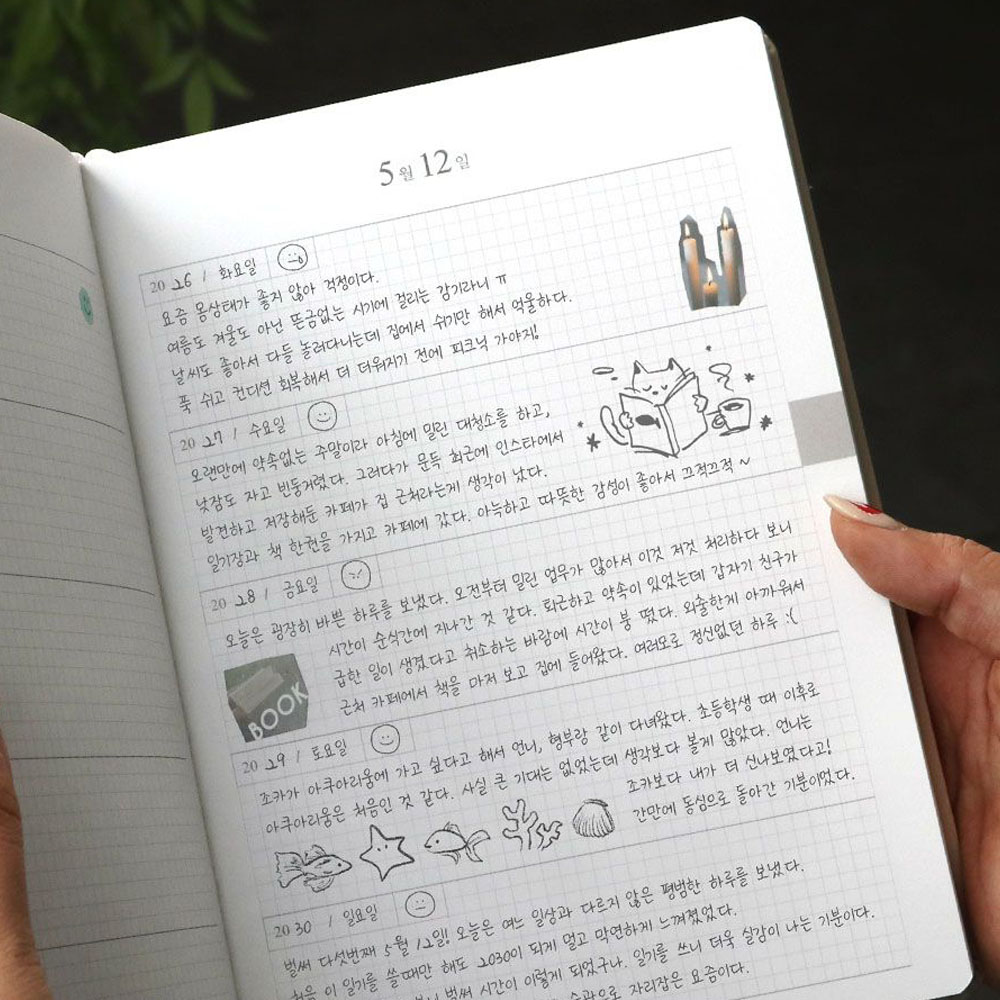 5월 12일
2026 / 화요일
요즘 몸상태가 좋지 않아 걱정이다.
여름도 겨울도 아닌 뜬금없는 시기에 걸리는 감기라니 ㅠ
날씨도 좋아서 다들 놀러다니는데 집에서 쉬기만 해서 억울하다.
푹 쉬고 컨디션 회복해서 더 더워지기 전에 피크닉 가야지!
2027 / 수요일
오랜만에 약속없는 주말이라 아침에 밀린 대청소를 하고,
낮잠도 자고 빈둥거렸다. 그러다가 문득 최근에 인스타에서
발견하고 저장해둔 카페가 집 근처라는게 생각이 났다.
일기장과 책 한권을 가지고 카페에 갔다. 아늑하고 따뜻한 감성이 좋아서 끄적끄적 ~
2028 / 금요일
오늘은 굉장히 바쁜 하루를 보냈다. 오전부터 밀린 업무가 많아서 이것 저것 처리하다 보니
시간이 순식간에 지나간 것 같다. 퇴근하고 약속이 있었는데 갑자기 친구가
급한 일이 생겼다고 취소하는 바람에 시간이 붕 떴다. 외출한게 아까워서
근처 카페에서 책을 마저 보고 집에 들어왔다. 여러모로 정신없던 하루 :(
BOOK
2029 / 토요일
조카가 아쿠아리움에 가고 싶다고 해서 언니, 형부랑 같이 다녀왔다. 초등학생 때 이후로
아쿠아리움은 처음인 것 같다. 사실 큰 기대는 없었는데 생각보다 볼게 많았다. 언니는
조카보다 내가 더 신나보였다고!
간만에 동심으로 돌아간 기분이었다.
2030 / 일요일
벌써 다섯번째 5월 12일! 오늘은 여느 일상과 다르지 않은 평범한 하루를 보냈다.
처음 이 일기를 쓸때만 해도 2030이 되게 멀고 막연하게 느껴졌었다.
벌써 시간이 이렇게 되었구나. 일기를 쓰니 더욱 실감이 나는 기분이다.
습관으로 자리잡은 요즘이다.